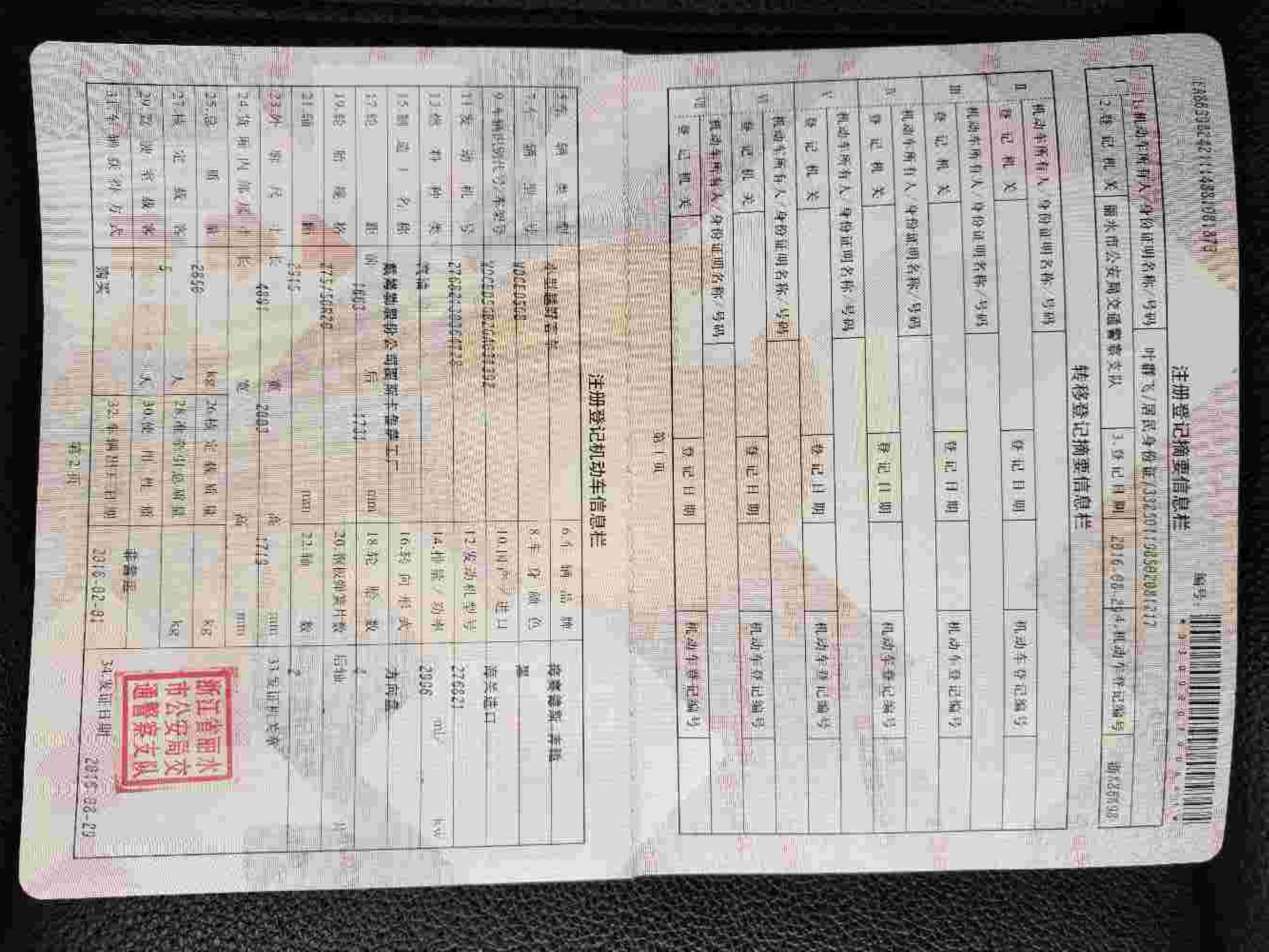 注册登记摘要信息栏
编号：
1.机动车所有人/身份证明名称/号码 叶群飞/居民身份证/
2.登记机关 丽水市公安局交通警察支队 3.登记日期 2016-08-29 4.机动车登记编号
转移登记摘要信息栏
Ⅱ 机动车所有人/身份证明名称/号码
登记机关 登记日期 机动车登记编号
Ⅲ 机动车所有人/身份证明名称/号码
登记机关 登记日期 机动车登记编号
Ⅳ 机动车所有人/身份证明名称/号码
登记机关 登记日期 机动车登记编号
Ⅴ 机动车所有人/身份证明名称/号码
登记机关 登记日期 机动车登记编号
Ⅵ 机动车所有人/身份证明名称/号码
登记机关 登记日期 机动车登记编号
Ⅶ 机动车所有人/身份证明名称/号码
登记机关 登记日期 机动车登记编号
第1页
注册登记机动车信息栏
5.车辆类型 小型越野客车 6.车辆品牌 梅赛德斯-奔驰
7.车辆型号 8.车身颜色 黑
9.车辆识别代号/车架号 10.国产/进口 海关进口
11.发动机号 12.发动机型号 276821
13.燃料种类 汽油 14.排量/功率 2996 mL/ kW
15.制造厂名称 戴姆勒股份公司图斯卡鲁萨工厂 16.转向形式 方向盘
17.轮距 前 后 1731 mm 18.轮胎数 4
19.轮胎规格 275/50R20 20.钢板弹簧片数 后轴 片
21.轴距 2915 mm 22.轴数 2
23.外廓尺寸 长 4891 宽 2003 高 1719 mm 33.发证机关章
24.货厢内部尺寸 长 宽 高 mm
25.总质量 2850 kg 26.核定载质量 kg
27.核定载客 5 人 28.准牵引总质量 kg
29.驾驶室载客 人 30.使用性质 非营运
31.车辆获得方式 购买 32.车辆出厂日期 2016-02-01 34.发证日期 2016-08-29
浙江省丽水
市公安局交
通警察支队
第2页